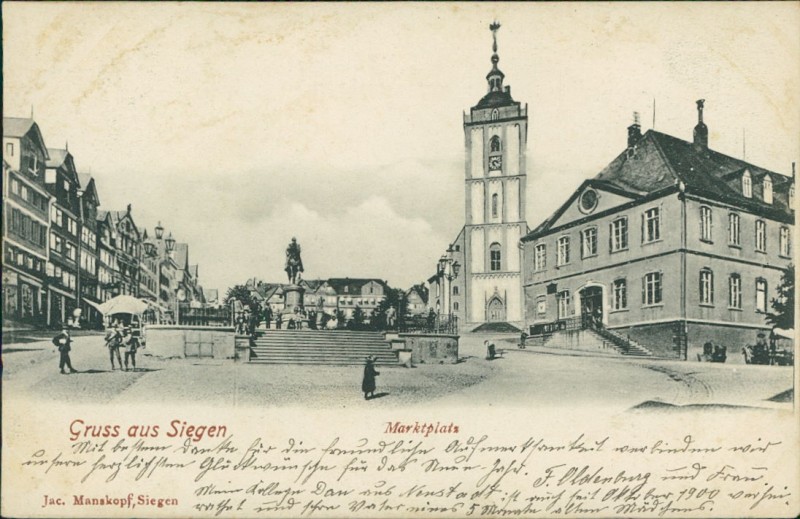 Gruss aus Siegen
Marktplatz
Mit bestem Danke für die freundliche Aufmerksamkeit verbinden wir
unsern herzlichsten Glückwunsch für das Neue Jahr. F. Oldenburg und Frau.
Mein Kollege Dan aus Neustadt ist auch seit Oktober 1900 verhei-
rathet und schon Vater eines 5 Monate alten Mädchens.
Jac. Manskopf, Siegen